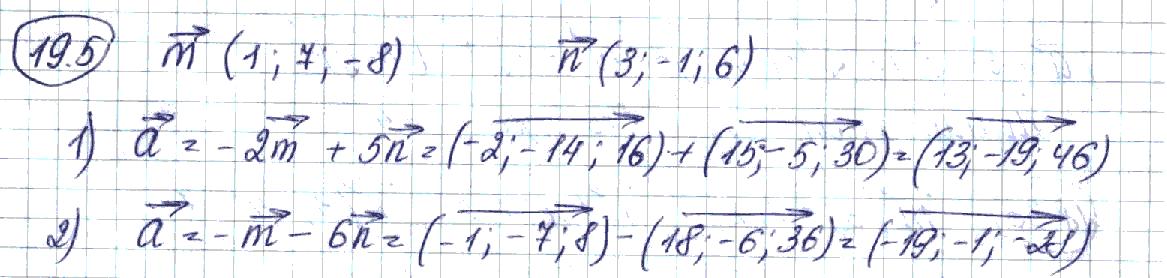 19.5 m⃗ (1; 7; -8) n⃗ (3; -1; 6)
1) a⃗ = -2m⃗ + 5n⃗ = (-2; -14; 16) + (15; -5; 30) = (13; -19; 46)
2) a⃗ = -m⃗ - 6n⃗ = (-1; -7; 8) - (18; -6; 36) = (-19; -1; -28)